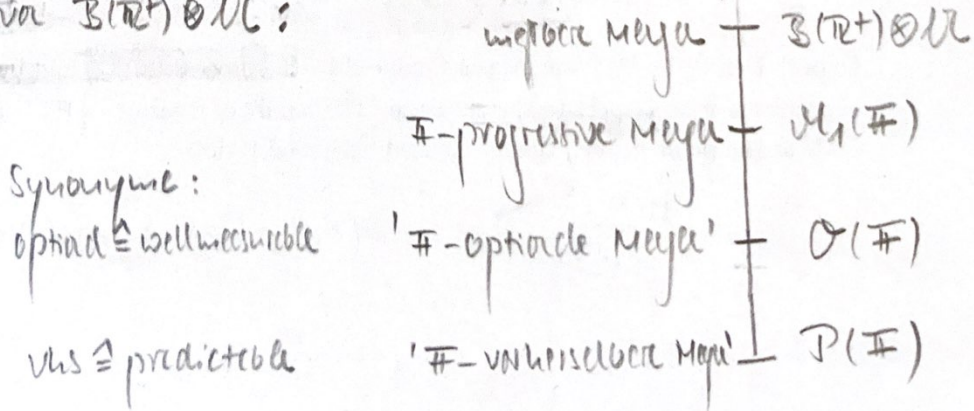 von B(ℝ⁺)⊗𝔄:
meßbare Mengen B(ℝ⁺)⊗𝔄
𝔽-progressive Mengen M₁(𝔽)
Synonyme:
optional ≙ wellmeasurable '𝔽-optionale Mengen' O(𝔽)
vhs ≙ predictable '𝔽-vorhersehbare Mengen' P(𝔽)